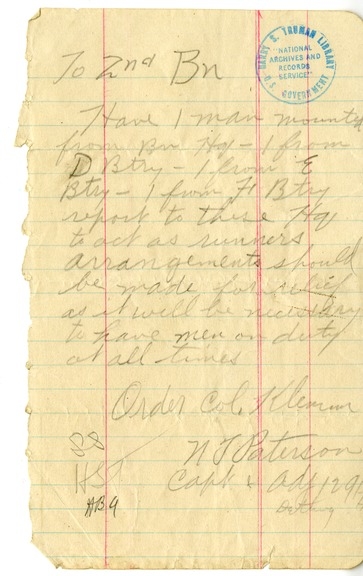 HARRY S. TRUMAN LIBRARY
"NATIONAL
ARCHIVES AND
RECORDS
SERVICE"
U.S. GOVERNMENT
To 2nd Bn
Have 1 man mounted
from Bn Hq - 1 from
D Btry - 1 from E
Btry - 1 from F Btry
report to these Hq
to act as runners
arrangements should
be made for relief
as it will be necessary
to have men on duty
at all times
Order Col. Klemm
N T Paterson
Capt & Adj 129